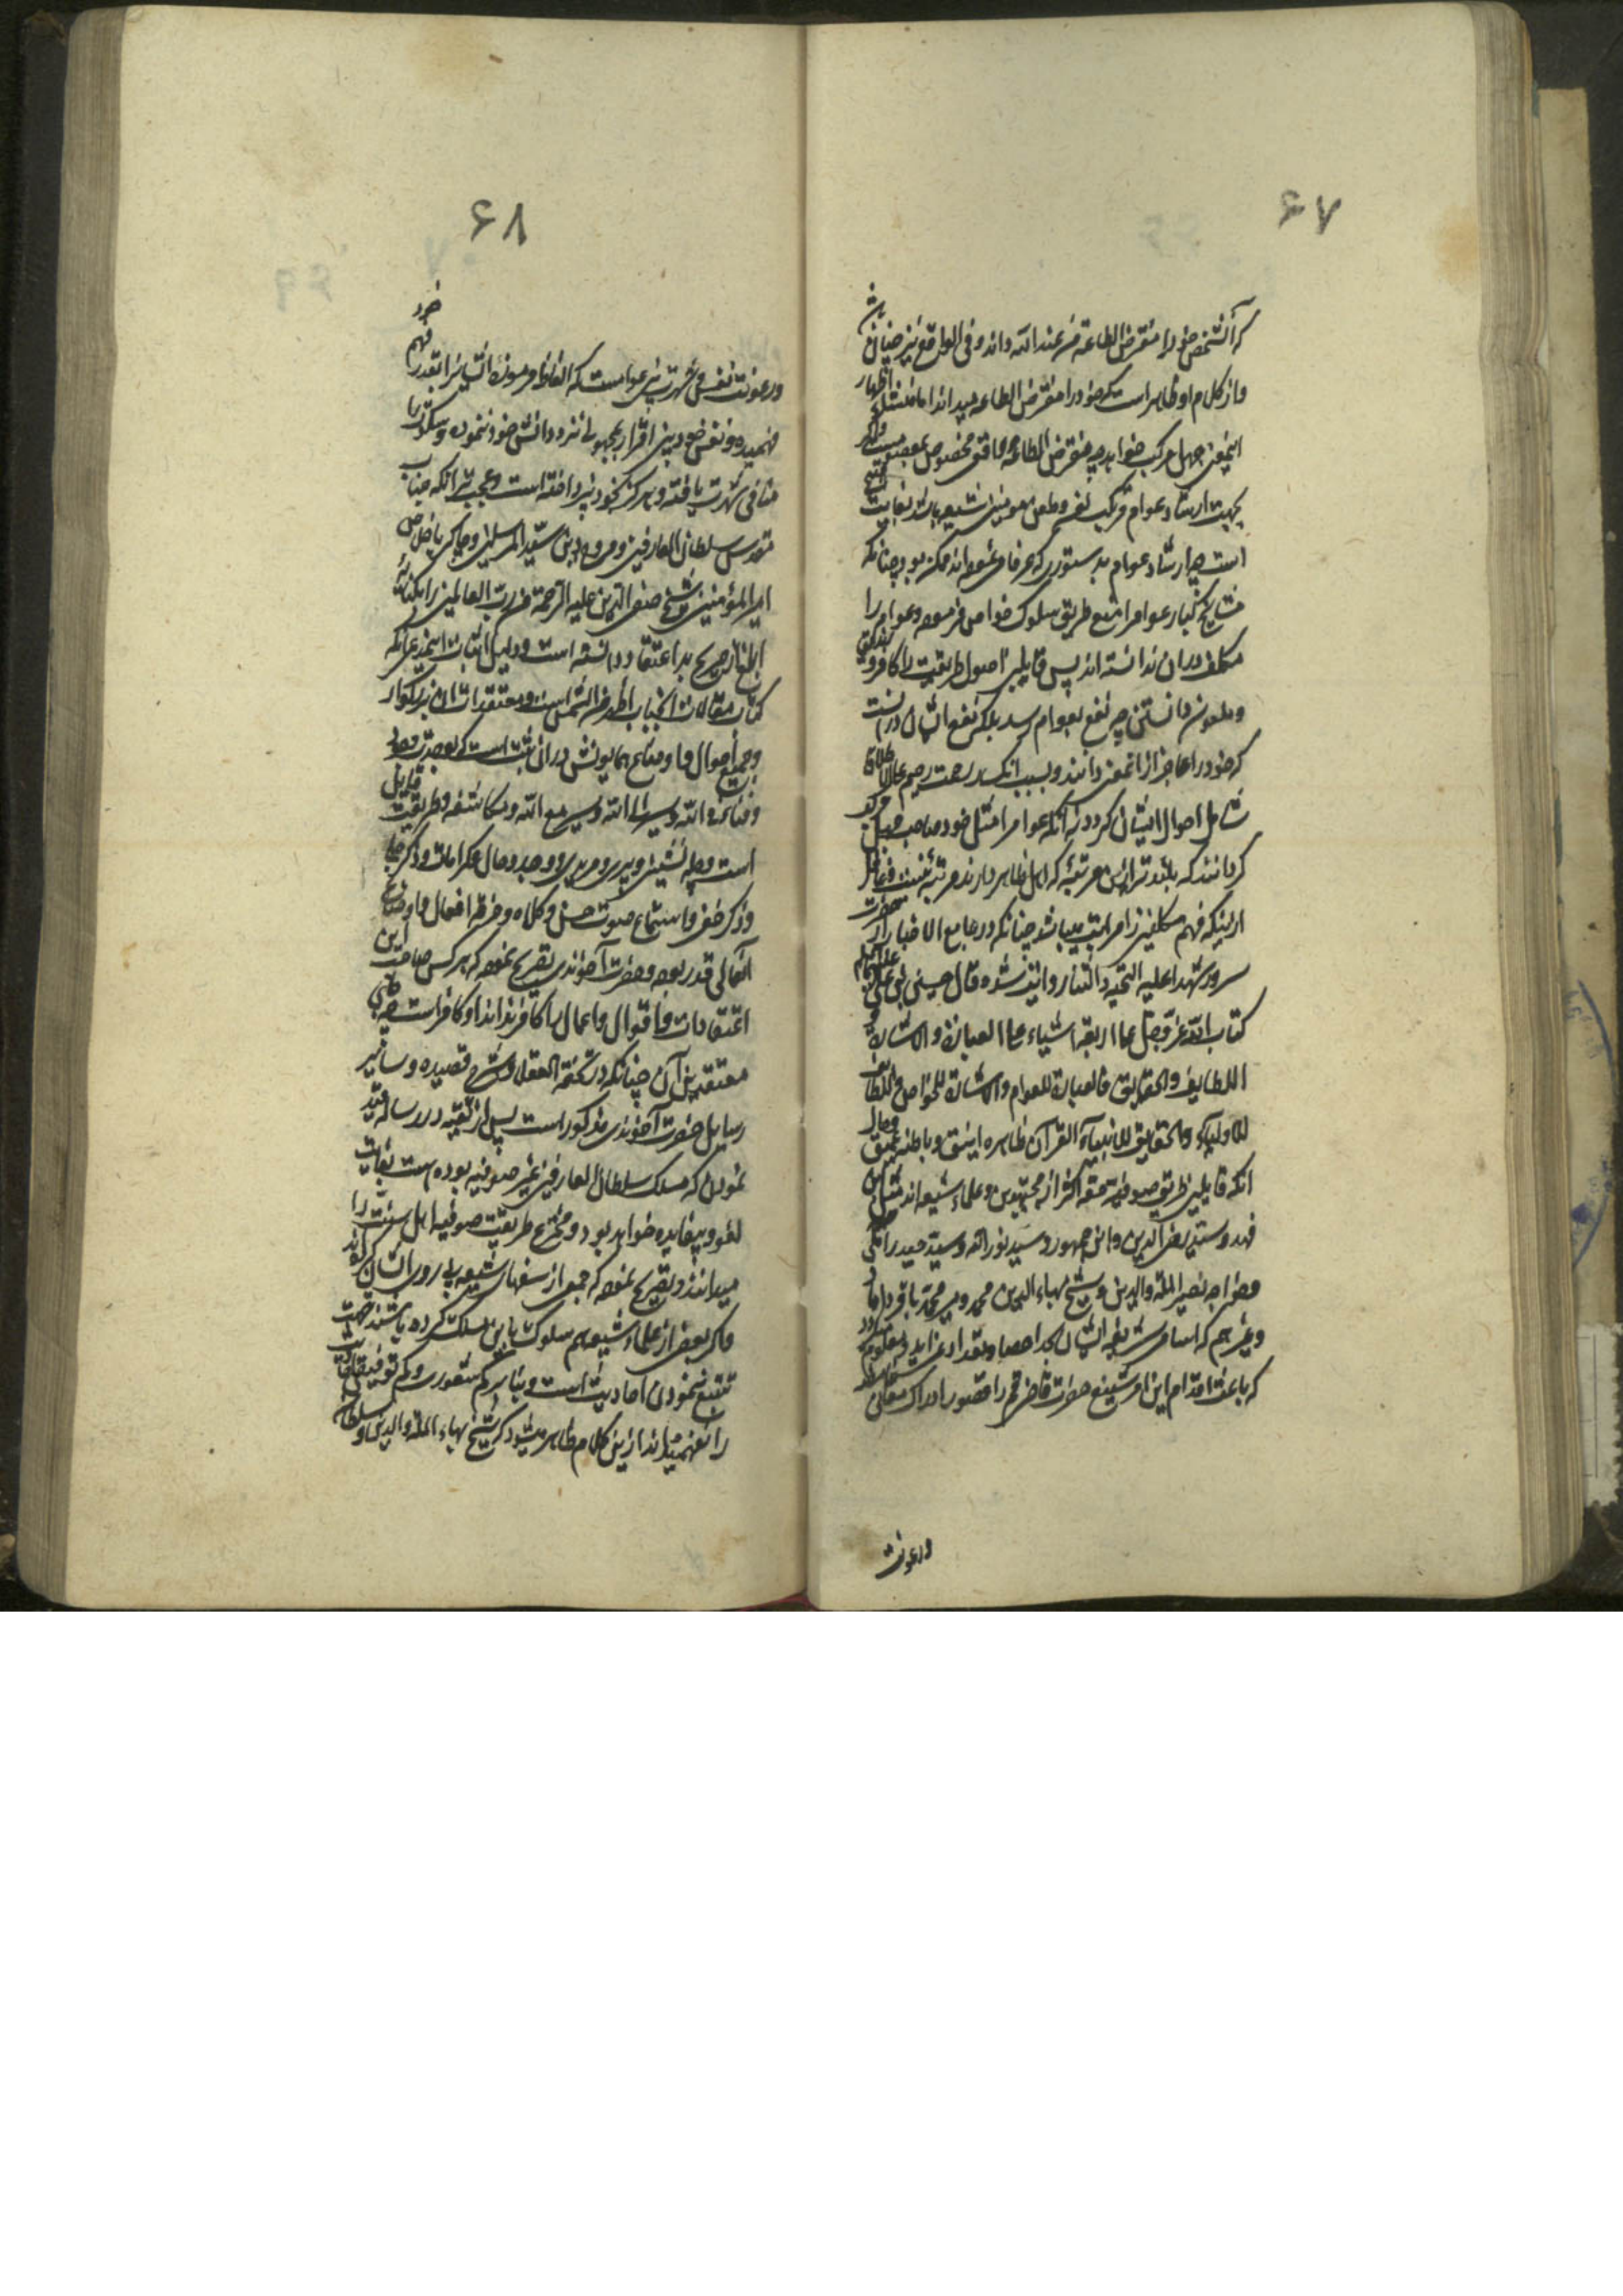 ۶۷
که آنشخص خود را مفترض الطاعة من عند الله داند و فی الواقع نیز چنان باشد
و از کلام او ظاهر است که خود را مفترض الطاعه میداند اما منشاء اظهار
اینمعنی جهل مرکب خواهد بود چه مفترض الطاعة مخصوص بمعصوم است و اگر
بجهت ارشاد عوام مرتکب لعن و طعن مومنین شیعه باشد بغایت قبیح
است چه ارشاد عوام بدستوری که عرفا فرموده‌اند ممکن بود چنانکه
مشایخ کبار عوام را منع طریق سلوک خواص فرموده و عوام را
مکلف دران ندانسته اند پس قایلین اصول طریقت را کافر و زندیق
و ملعون دانستن چه نفع بعوام رسد بلکه نفع ایشان در آنست
که خود را عاجز از اینمعنی دانند و بسبب انکسار رحمت رحیم علی الاطلاق
شامل احوال ایشان گردد نه آنکه عوام را مثل خود صاحب جهل مرکب
گردانند که بلندتر از این مرتبه که اهل ظاهر دارند مرتبه نیست و غافل
از اینکه فهم مکلفین را مراتب میباشد چنانکه در جامع الاخبار از حضرت
سرور شهدا علیه التحیه و الثنا روایت شده قال حسین بن علی علیهما السلام
کتاب الله عز و جل علی اربعة اشیاء علی العبارة و الاشارة و
اللطایف و الحقایق فالعبارة للعوام و الاشارة للخواص و اللطایف
للاولیاء و الحقایق للانبیاء القرآن ظاهره انیق و باطنه عمیق و حال
آنکه قایلین طریق صوفیه حقه اکثر از مجتهدین و علماء شیعه اند مثل ابن
فهد و سید رضی الدین و ابن جمهور و سید نور الله و سید حیدر آملی
و خواجه نصیر الملة و الدین و شیخ بهاء الدین محمد و میر محمد باقر داماد
و غیر هم که اسامی شریفه ایشان بحد احصا و تعداد نمی آید و معلوم میگردد
که باعث اقدام این امر شنیع حضرت قاضی قم را قصور ادراک معانی
و رعونت
۶۸
و رعونت نفس و شهرت بین عوامست که الفاظ مرموزه ایشانرا بقدر فهم خود
فهمیده و نفس خود بین اقرار بمجهولی نزد دانش خود ننموده و سکوت را
منافی شهرت یافته و هرگز بخود نپرداخته است و عجب‌تر آنکه جناب
مقدس سلطان العارفین و مروج دین سید المرسلین و چاکر باخلاص
امیر المؤمنین شیخ صفی الدین علیه الرحمة من رب العالمین را بکنایه
ابلغ از صریح بد اعتقاد دانسته است و دلیل اثبات اینمدعا آنکه
کتاب مقالات آنجناب اظهر من الشمس است و معتقدات آن بزرگوار
و جمیع احوال و اوضاع همایونش دران ثبت است که بوحدت وجود
و فنای فی الله و سیر الی الله و سیر مع الله و مکاشفه و طریقت قایل
است و چله نشینی و پیری و مریدی و وجد و حال و کرامات و ذکر جلی
و ذکر خفی و استماع صوت حسن و کلاه و خرقه افعال و اوضاع
آنعالی قدر بوده و حضرت آخوندی تصریح نموده که هر کس صاحب این
اعتقادات و اقوال و اعمال را کافر نداند او کافر است چه جای
معتقدین آن چنانکه در تحفة العقلا و شرح قصیده و سایر
رسایل حضرت آخوندی مذکور است پس از تقیه در رساله قید
نمودن که مسلک سلطان العارفین غیر صوفیه بوده است بغایت
لغو و بیفایده خواهد بود و مخترع طریقت صوفیه اهل سنت را
میدانند و تصریح نموده که جمعی از سفهای شیعه پیروی ایشان کرده‌اند
و اگر بعضی از علماء شیعه هم سلوک باین مسلک کرده باشند جهت
تتبع ننمودن احادیث است و بنابر کم شعوری و کم توفیقی احادیث
را نفهمیده‌اند از این کلام ظاهر میشود که شیخ بهاء الملة و الدین و سلطان